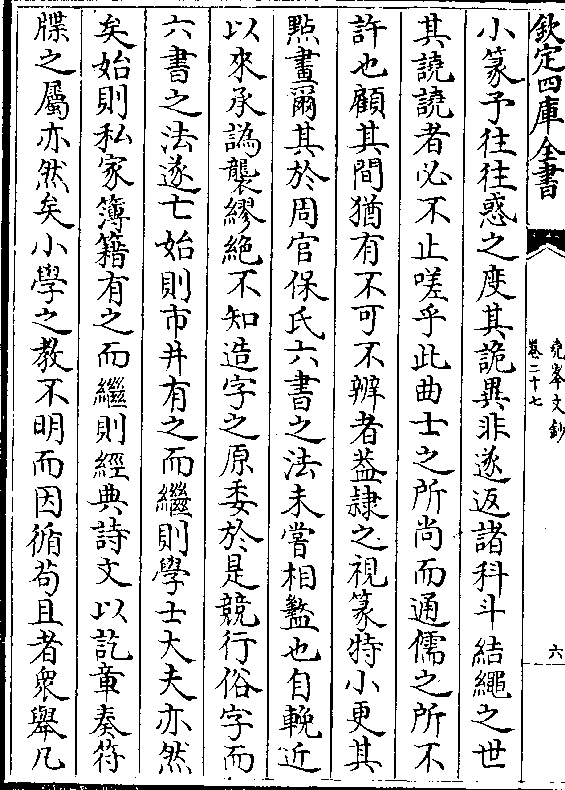 欽定四庫全書
堯峯文鈔
卷二十七
六
小篆予往往惑之度其詭異非遂返諸科斗結繩之世
其譊譊者必不止嗟乎此曲士之所尚而通儒之所不
許也顧其間猶有不可不辨者葢隷之視篆特小更其
點畫爾其於周官保氏六書之法未嘗相盭也自輓近
以來承譌襲繆絶不知造字之原委於是競行俗字而
六書之法遂亡始則市井有之而繼則學士大夫亦然
矣始則私家簿籍有之而繼則經典詩文以訖章奏符
牒之屬亦然矣小學之教不明而因循苟且者衆舉凡